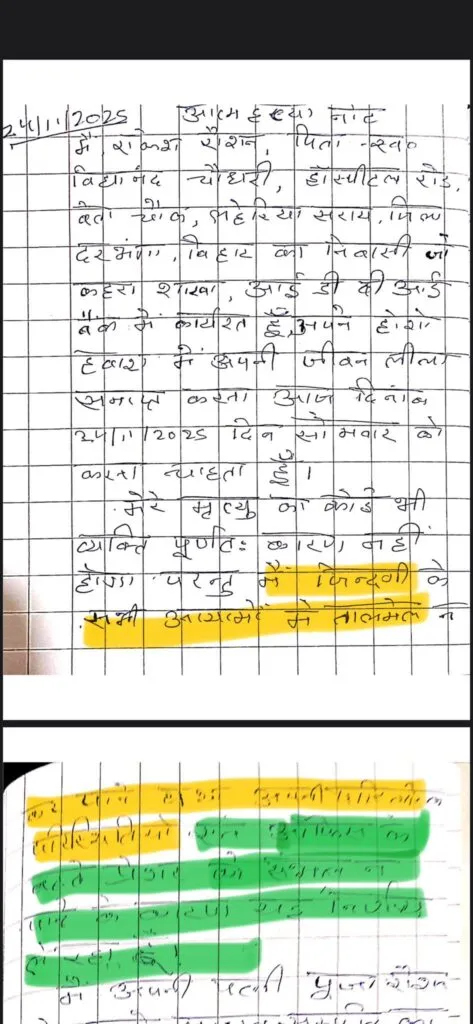 24/11/2025 आत्महत्या नोट
मैं, राकेश रौशन, पिता - स्व०
विद्यानंद चौधरी, हॉस्पीटल रोड,
बेता चौक, लहेरिया सराय, जिला
दरभंगा, विहार का निवासी जो
कहरा शाखा, आई डी बी आई
बैंक में कार्यरत हूँ, अपने होशो
हवाश में अपनी जीवन लीला
समाप्त करता आज दिनांक
24/11/2025 दिन सोमवार को
करना चाहता हूँ।
मेरे मृत्यु का कोई भी
व्यक्ति पूर्णतः कारण नहीं
होगा परन्तु मैं जिन्दगी के
सभी आयामों में तालमेल न
कर पाने अपनी पारिवारिक
परिस्थितियों एवं ऑफिस के
बढ़ते प्रेशर को संभाल न
पाने के कारण यह निर्णय
ले रहा हूँ।
मैं अपनी पत्नी पूजा रौशन